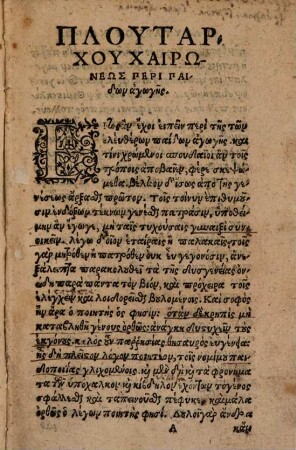 ΠΛΟΥΤΑΡ-
ΧΟΥ ΧΑΙΡΩ-
ΝΕΩΣ ΠΕΡΙ ΠΑΙ-
δων ἀγωγῆς.
ΤΙ ἄν ἔχοι εἰπεῖν περὶ τῆς τῶν
ἐλευθέρων παίδων ἀγωγῆς καὶ
τίνι χρώμενοι σπουδαῖοι ἂν τοὺς
τρόπους ἀποβαῖεν, φέρε σκεψώ-
μεθα. Βέλτιον δ' ἴσως ἀπὸ τῆς γε-
νέσεως ἄρξασθαι πρῶτον. Τοῖς τοίνυν ἐπιθυμοῦ-
σιν ἐνδόξων τέκνων γενέσθαι πατράσιν, ὑποθεί-
μην ἂν ἔγωγε, μὴ ταῖς τυχούσαις γυναιξὶ συν-
οικεῖν. λέγω δ' οἷον ἑταίραις ἢ παλακαῖς. τοῖς
γὰρ μητρόθεν ἢ πατρόθεν οὐκ εὖ γεγονόσιν, ἀνε-
ξάλειπτα παρακολουθεῖ τὰ τῆς δυσγενείας ὀνεί-
δη παρὰ πάντα τὸν βίον, καὶ πρόχειρα τοῖς
ἐλέγχειν καὶ λοιδορεῖσθαι βουλομένοις. Καὶ σοφὸς
ἦν ἄρα ὁ ποιητὴς ὅς φησιν· ὅταν δὲ κρηπὶς μὴ
καταβληθῇ γένους ὀρθῶς· ἀνάγκη δυστυχεῖν τοὺς
ἐκγόνους. καλὸς οὖν παρρησίας θησαυρὸς εὐγένεια,
ἧς δὴ πλεῖστον λόγον ποιητέον, τοῖς νομίμου παι-
δοποιίας γλιχομένοις. καὶ μὲν δὴ καὶ τὰ φρονήματα
τῶν ὑπόχαλκον καὶ κίβδηλον ἐχόντων τὸ γένος
σφάλλεσθαι καὶ ταπεινοῦσθαι πέφυκε. καὶ μάλα
ὀρθῶς ὁ λέγων ποιητής φησι. Δουλοῖ γὰρ ἄνδρα
A κἂν